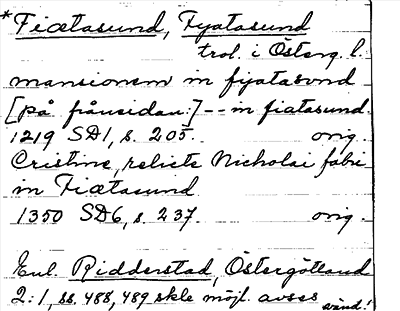 *Fiætasund, Fyatasund
trol. i Österg. l.
mansionem in fyatasond
[på frånsidan:] -- in fiatasund.
1219 SD1, s. 205. orig.
Cristine, relicte Nicholai fabri
in Fiætasund
1350 SD6, s. 237. orig.
Enl. Ridderstad, Östergötland
2:1, ss. 488, 489 skle möjl. avses
vänd!